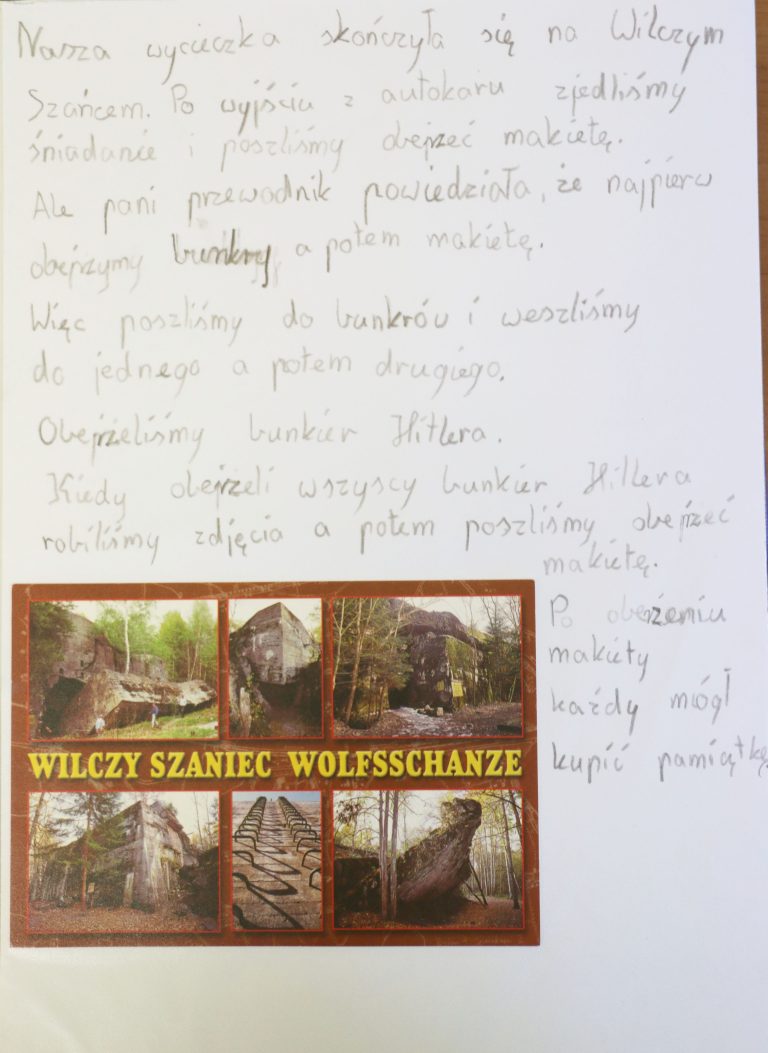 Nasza wycieczka skończyła się na Wilczym
Szańcem. Po wyjściu z autokaru zjedliśmy
śniadanie i poszliśmy obejrzeć makietę.
Ale pani przewodnik powiedziała, że najpierw
obejrzymy bunkry, a potem makietę.
Więc poszliśmy do bunkrów i weszliśmy
do jednego a potem drugiego.
Obejrzeliśmy bunkier Hitlera.
Kiedy obejrzeli wszyscy bunkier Hitlera
robiliśmy zdjęcia a potem poszliśmy obejrzeć
makietę.
Po obejrzeniu
makiety
każdy mógł
kupić pamiątkę.
WILCZY SZANIEC WOLFSSCHANZE